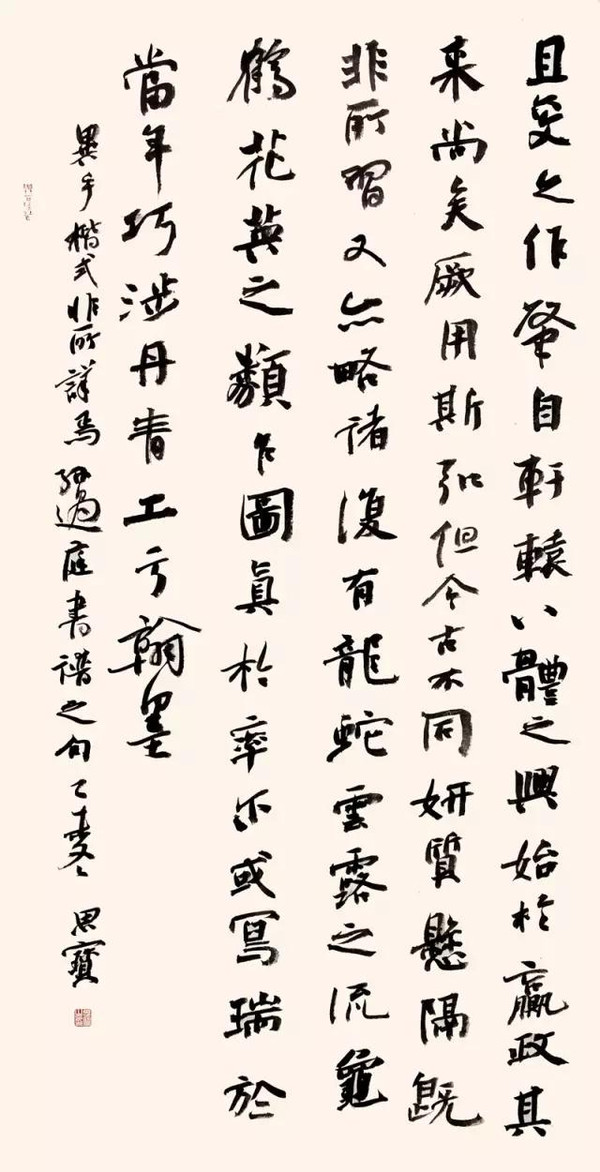 且爻之作肇自軒轅八體之興始於嬴政其
来尚矣厥用斯弘但今古不同妍質懸隔既
非所習又亦略诸復有龍蛇雲露之流龜
鶴花英之類乍圖真於率尔或寫瑞於
當年巧涉丹青工亏翰墨
異乎楷式非所詳焉孫過庭書谱之句乙未冬思寶